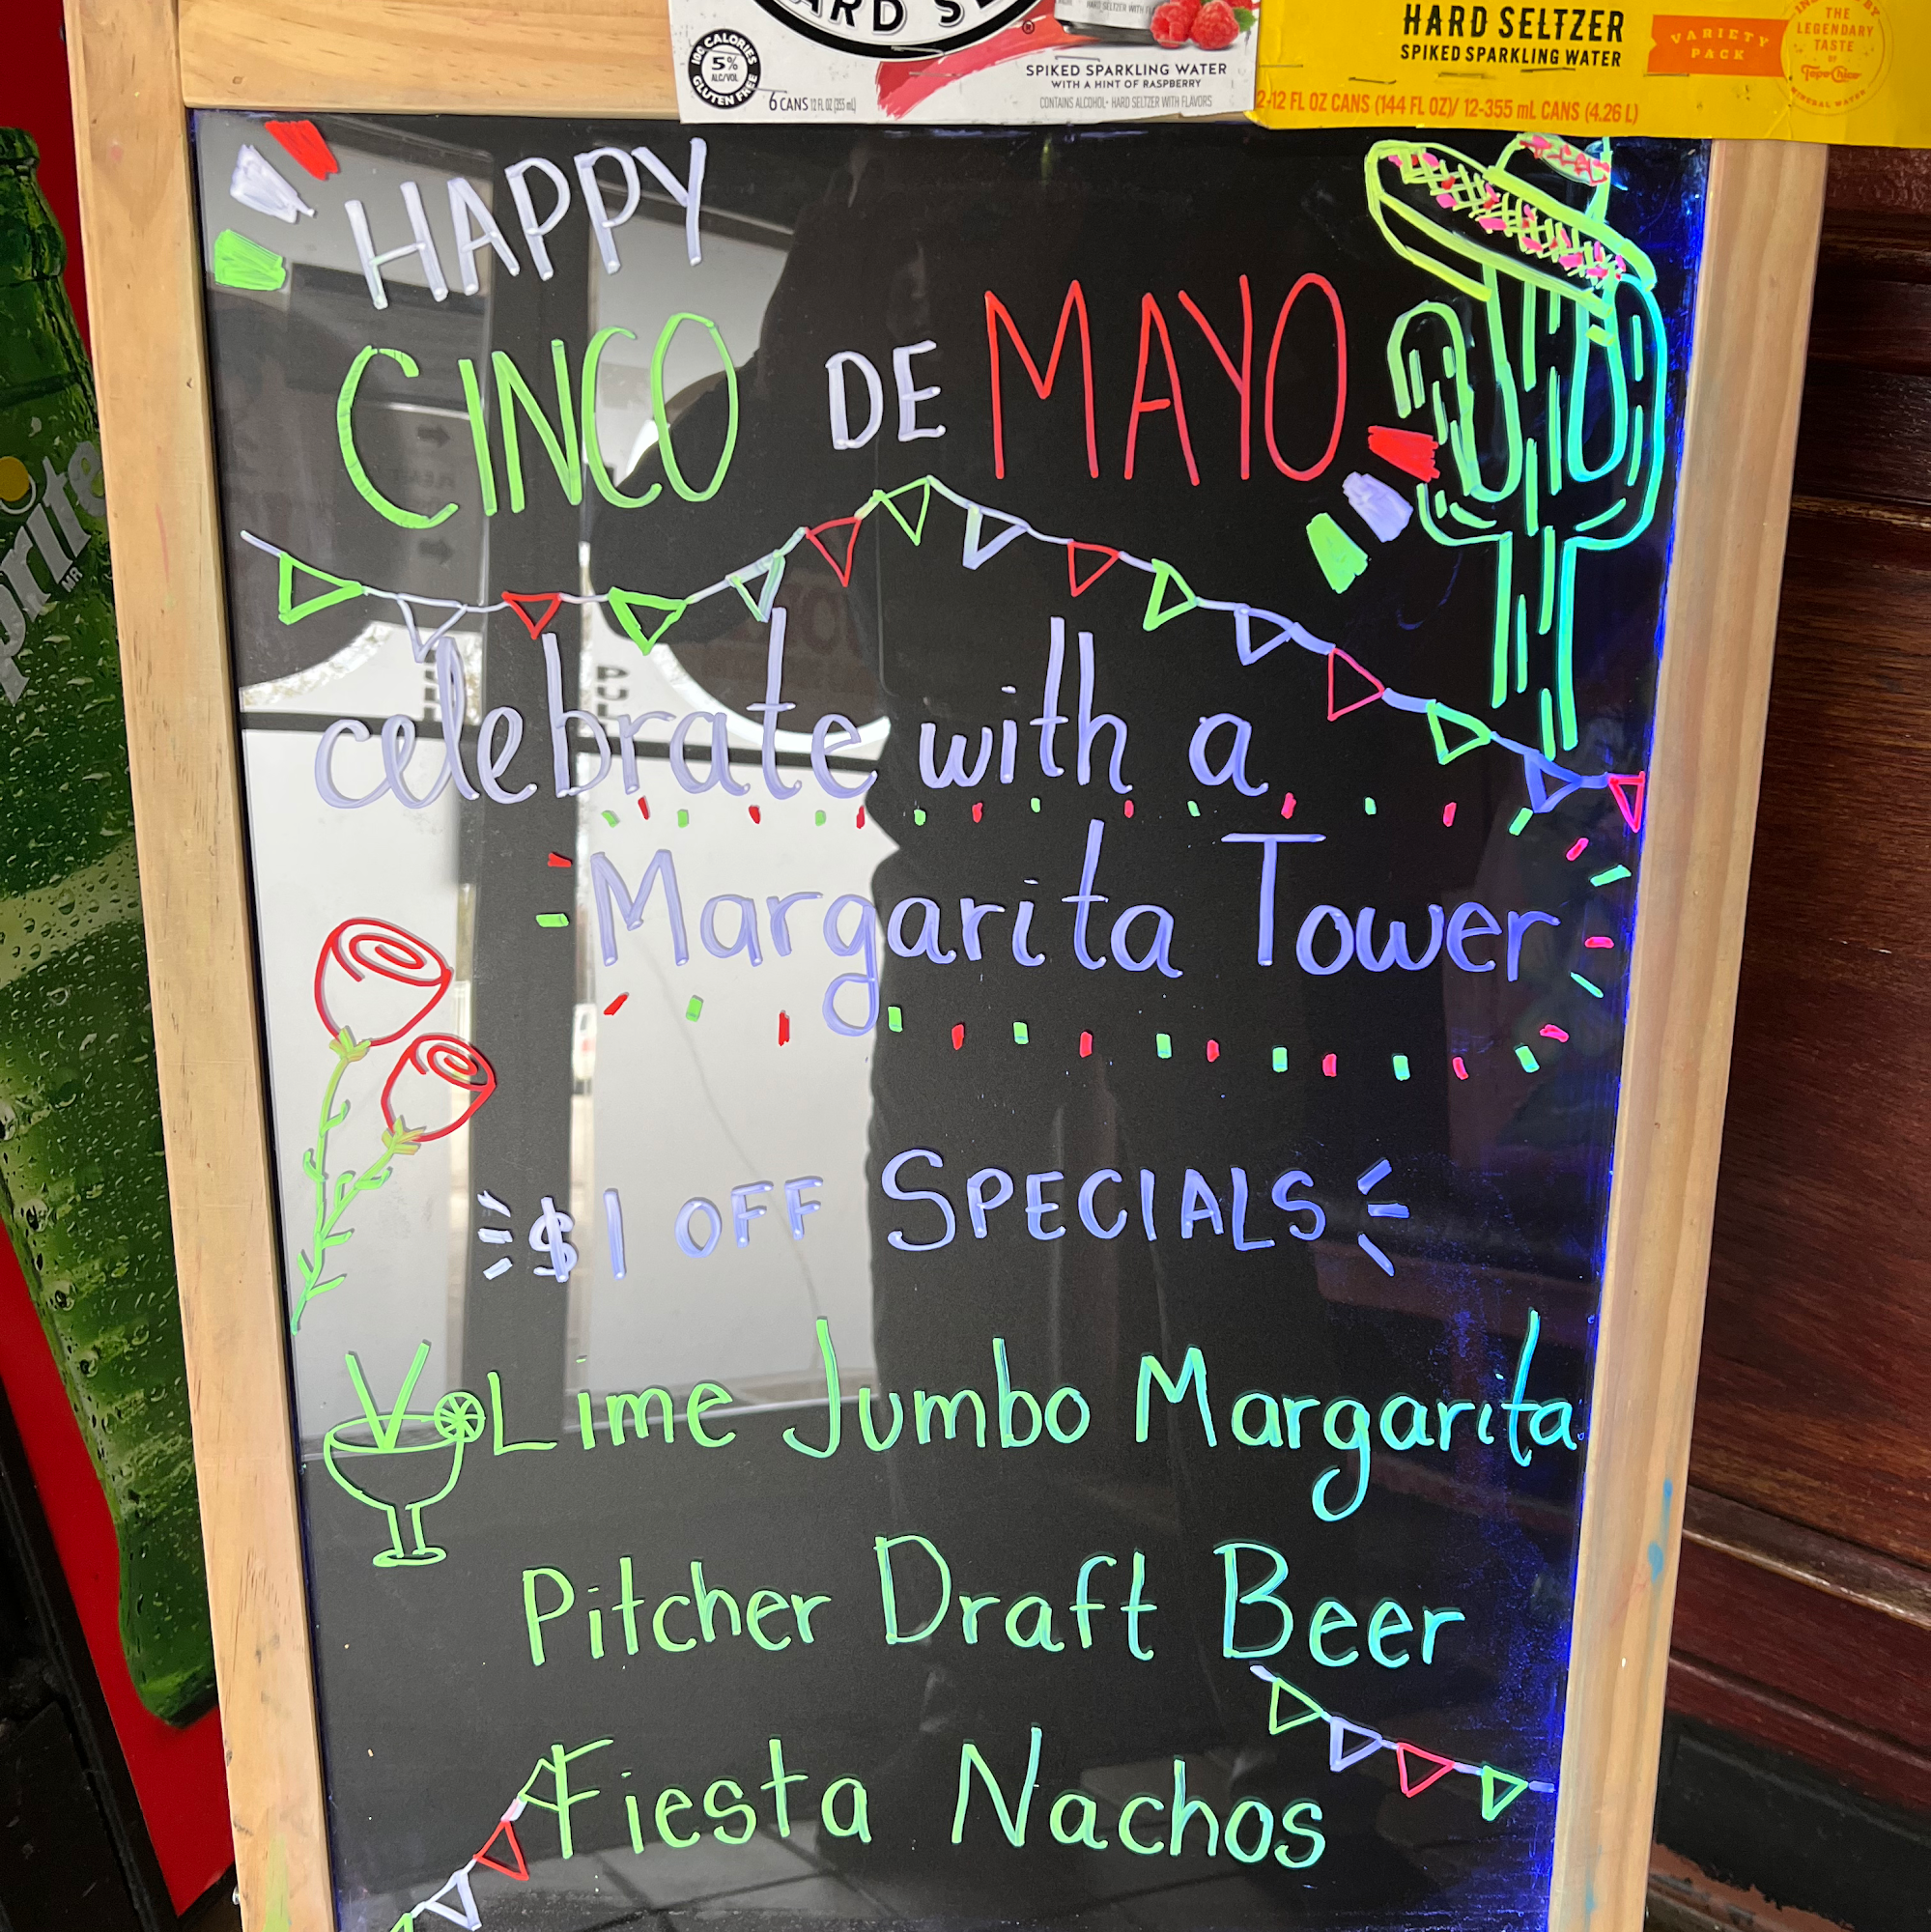 HARD SELTZER
SPIKED SPARKLING WATER
VARIETY
PACK
THE
LEGENDARY
TASTE
OF
Topo Chico
MINERAL WATER
100 CALORIES
5%
ALC/VOL
GLUTEN FREE
6 CANS 12 FL OZ (355 mL)
SPIKED SPARKLING WATER
WITH A HINT OF RASPBERRY
CONTAINS ALCOHOL • HARD SELTZER WITH FLAVORS
2-12 FL OZ CANS (144 FL OZ)/ 12-355 mL CANS (4.26 L)
HAPPY
CINCO DE MAYO
celebrate with a
Margarita Tower
$1 OFF SPECIALS
Lime Jumbo Margarita
Pitcher Draft Beer
Fiesta Nachos
prite
MR